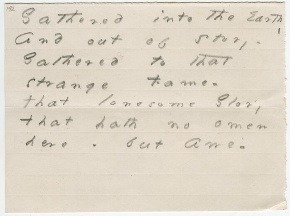 Gathered into the Earth,
And out of story,
Gathered to that
strange Fame.
that lonesome Glory,
that hath no omen
here. but Awe.